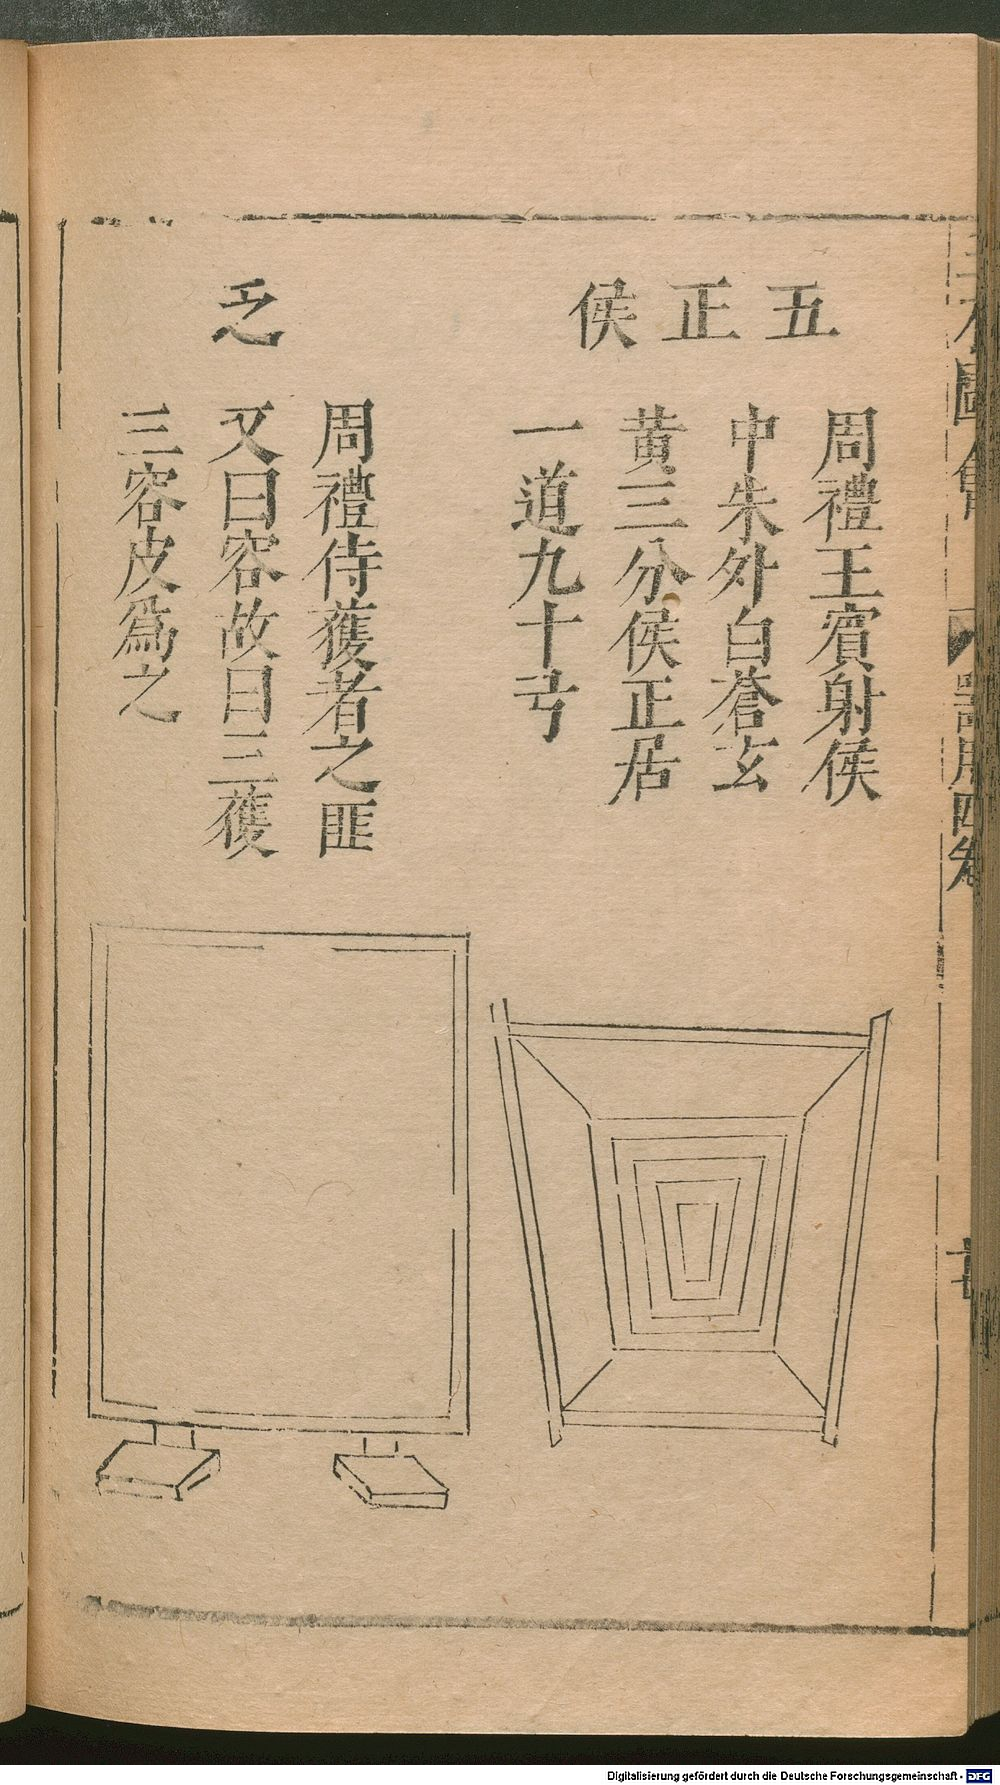 三才圖會
器用四卷
五正侯
周禮王賓射侯
中朱外白蒼玄
黄三分侯正居
一道九十弓
乏
周禮侍獲者之匪
又曰容故曰三獲
三容皮爲之
Digitalisierung gefördert durch die Deutsche Forschungsgemeinschaft - DFG